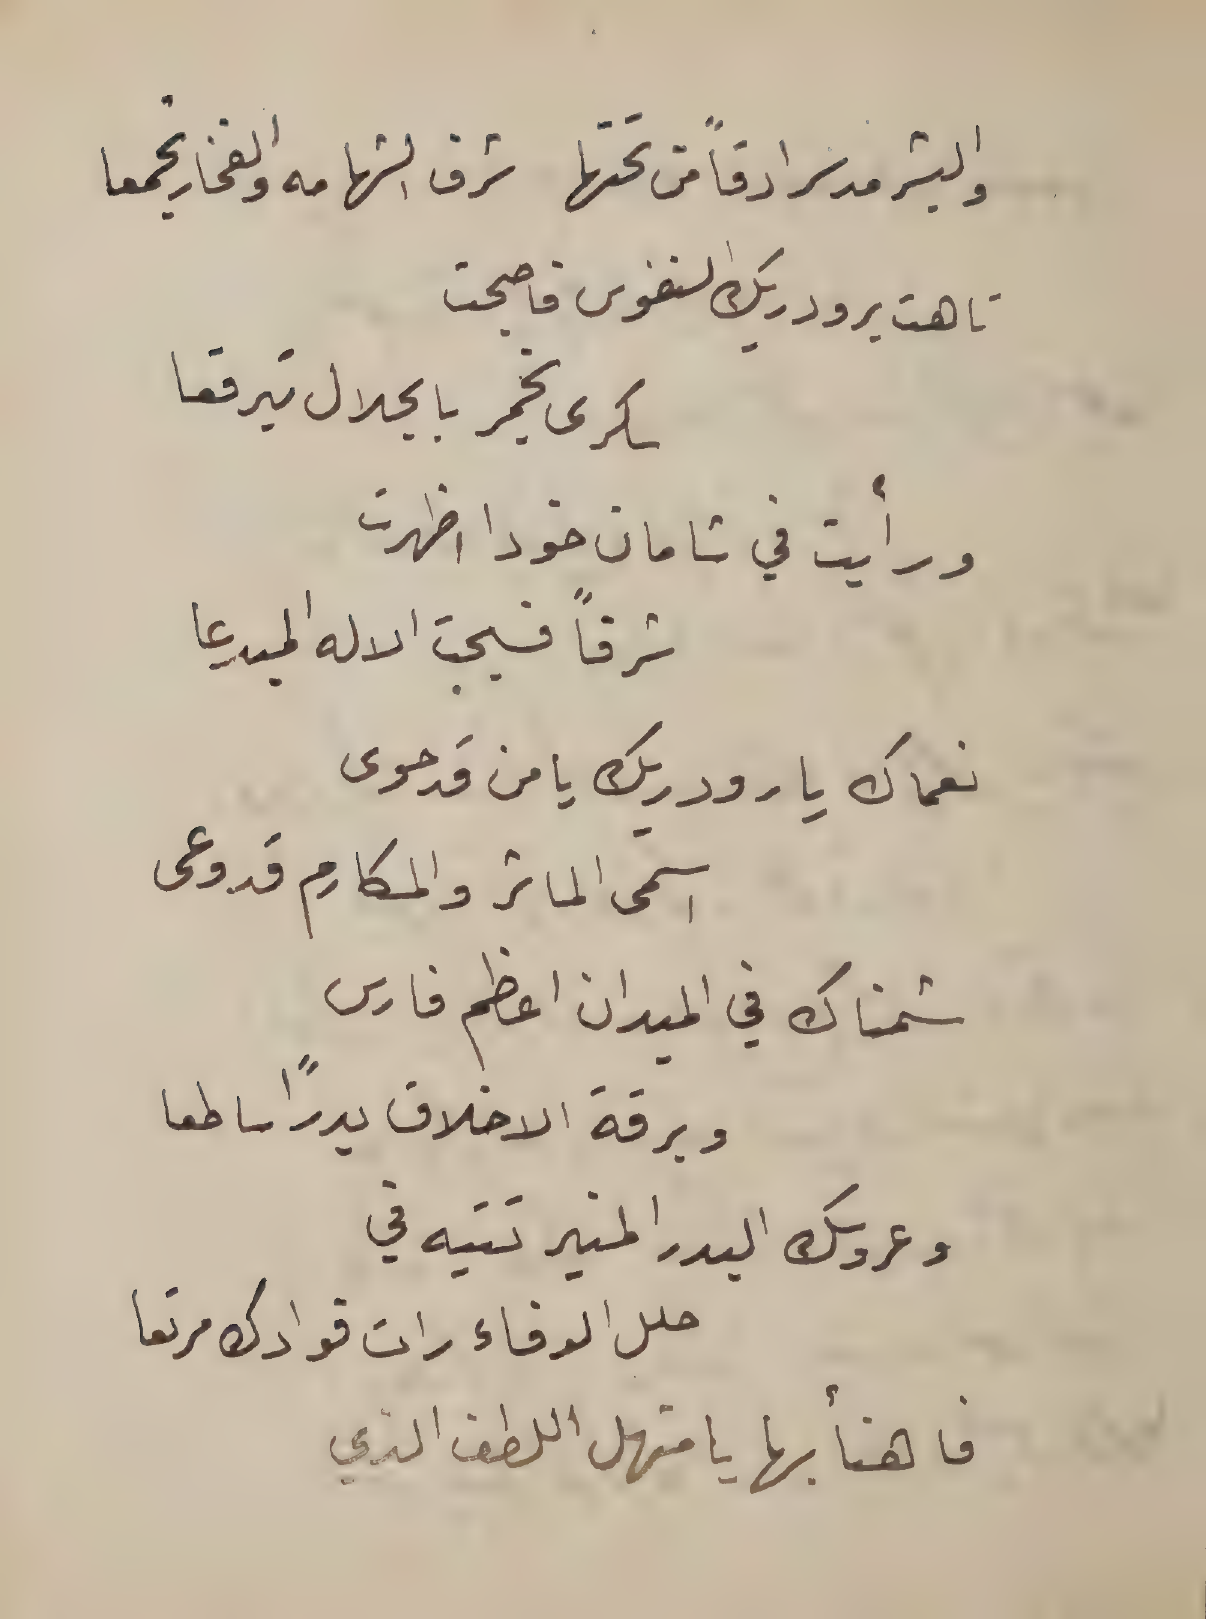 والبشر مد سرادقاً من تحتها شرف الشهامه والفخار تجمعا
تاهت برودريك النفوس فاصبحت
سكرى بخمر بالجلال تبرقعا
ورأيت في شامات خودا اظهرت
شرفاً فسبحت الاله المبدعا
نعماك يا رودريك يا من قد حوى
اسمى الماثر والمكارم قد وعى
شمناك في الميدان اعظم فارس
وبرقة الاخلاق بدرًا ساطعا
وعروسك البدر المنير تتيه في
حلل الوفاء رات فوادك مرتعا
فاهنأ بها يا منهل اللطف الذي